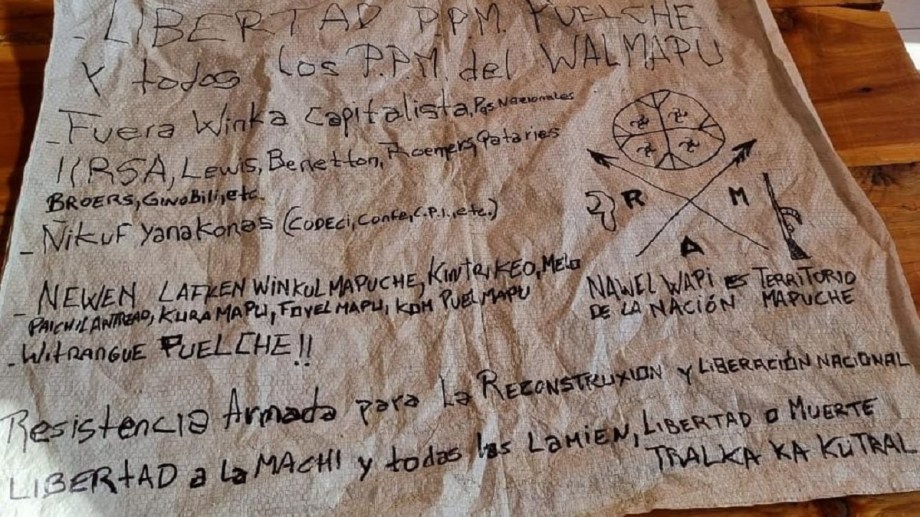 - LIBERTAD P.P.M. PUELCHE
Y todos los P.P.M. del WALMAPU
- Fuera Winka Capitalista, Pqs Nacionales
IIRSA, Lewis, Benetton, Roemers, Qataries
BROERS, Ginobili, etc.
- Ñikuf Yanakonas (CODECI, Confe, C.P.I., etc.)
- NEWEN LAFKEN WINKUL MAPUCHE, KINTRIKEO, Melo
PAICHIL ANTREAO, KURA MAPU, FOYEL MAPU, KOM PUEL MAPU
- WITRANGUE PUELCHE!!
R M
A
NAWEL WAPI ES TERRITORIO
DE LA NACIÓN MAPUCHE
Resistencia Armada para La RECONSTRUXION y LIBERACIÓN NACIONAL
LIBERTAD a la MACHI y todas las LAMIEN, LIBERTAD O MUERTE
TRALKA KA KUTRAL